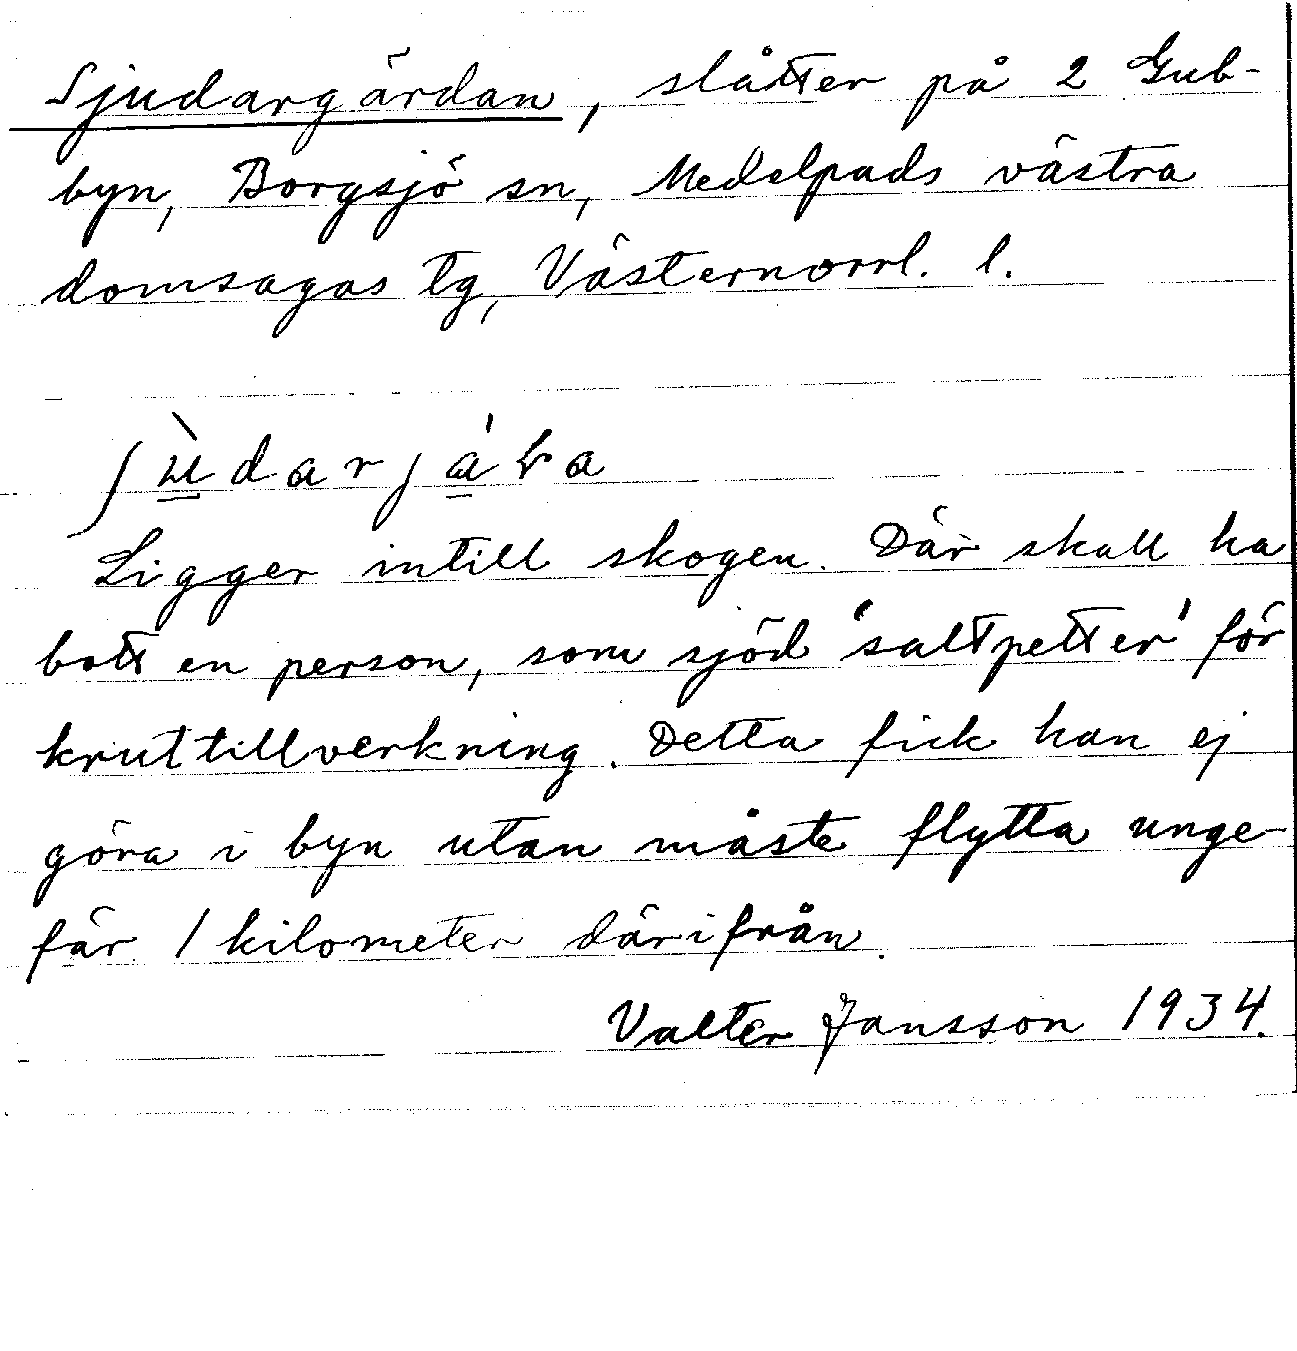 Sjudargärdan, slåtter på 2 Gub-
byn, Borgsjö sn, Medelpads västra
domsagas tg, Västernorrl. l.
Ligger intill skogen. Där skall ha
bott en person, som sjöd 'saltpetter' för
kruttillverkning. Detta fick han ej
göra i byn utan måste flytta unge-
fär 1 kilometer därifrån.
Valter Jansson 1934.